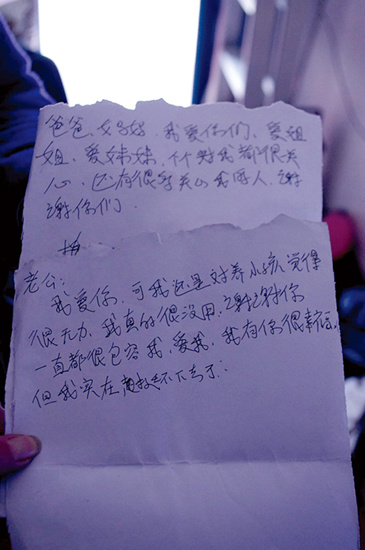 爸爸、妈妈好,我爱你们、爱姐
姐、爱妹妹,个个对我都很关
心,还有很多关心我的人,谢
谢你们.
梅
老公:
我爱你,可我还是对养小孩觉得
很无力,我真的很没用,谢谢你
一直都很包容我,爱我,我有你很幸福。
但我实在 不下去了..